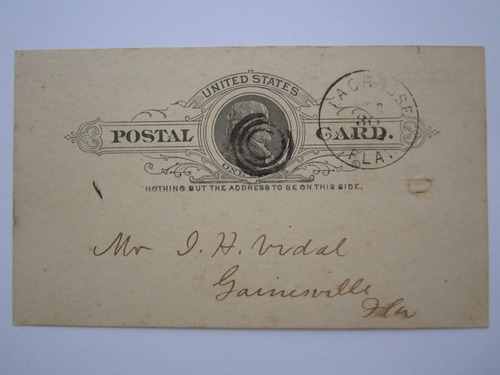 UNITED STATES
POSTAL CARD.
ONE
NOTHING BUT THE ADDRESS TO BE ON THIS SIDE.
LACROSSE
30
FLA.
Mr I. H. Vidal
Gainesville
Fla